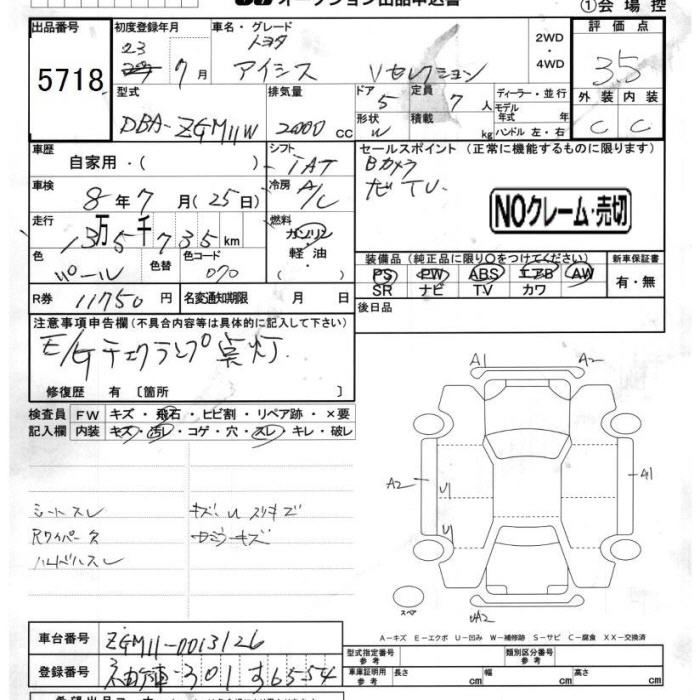 オークション出品申込書
①会場控
出品番号 初度登録年月 車名・グレード 2WD ・4WD 評価点
5718 23 7月 トヨタ アイシス Vセレクション 3.5
型式 排気量 ドア 定員 ディーラー・並行 外装 内装
DBA-ZGM11W 2000cc 5 7人 モデル年式 年 C C
形状 W 積載 kg ハンドル 左・右
車歴 シフト セールスポイント(正常に機能するものに限ります)
自家用・( ) iAT Bカメラ
車検 冷房
8年7月(25日) A/C TV
NOクレーム・売切
走行 燃料
13万5千735km ガソリン・軽油・( )
色 色替 色コード 装備品(純正品に限り○をつけてください) 新車保証書
パール 070 PS PW ABS エアB AW 有・無
SR ナビ TV カワ
R券 11750円 名変通知期限 月 日 後日品
注意事項申告欄(不具合内容等は具体的に記入して下さい)
E/Gチェックランプ点灯
修復歴 有 〔箇所 〕
検査員 FW キズ・飛石・ヒビ割・リペア跡・×要
記入欄 内装 キズ・汚レ・コゲ・穴・スレ・キレ・破レ
A1 A2
A2 U1 A1
U1
シートスレ キズ.U
Rワイパー欠
ハンドルスレ
スペア A2
A-キズ E-エクボ U-凹み W-補修跡 S-サビ C-腐食 XX-交換済
車台番号 ZGM11-0013126 型式指定番号 参考 類別区分番号 参考
登録番号 301 す 65-54 車庫証明用 参考 長さ cm 幅 cm 高さ cm